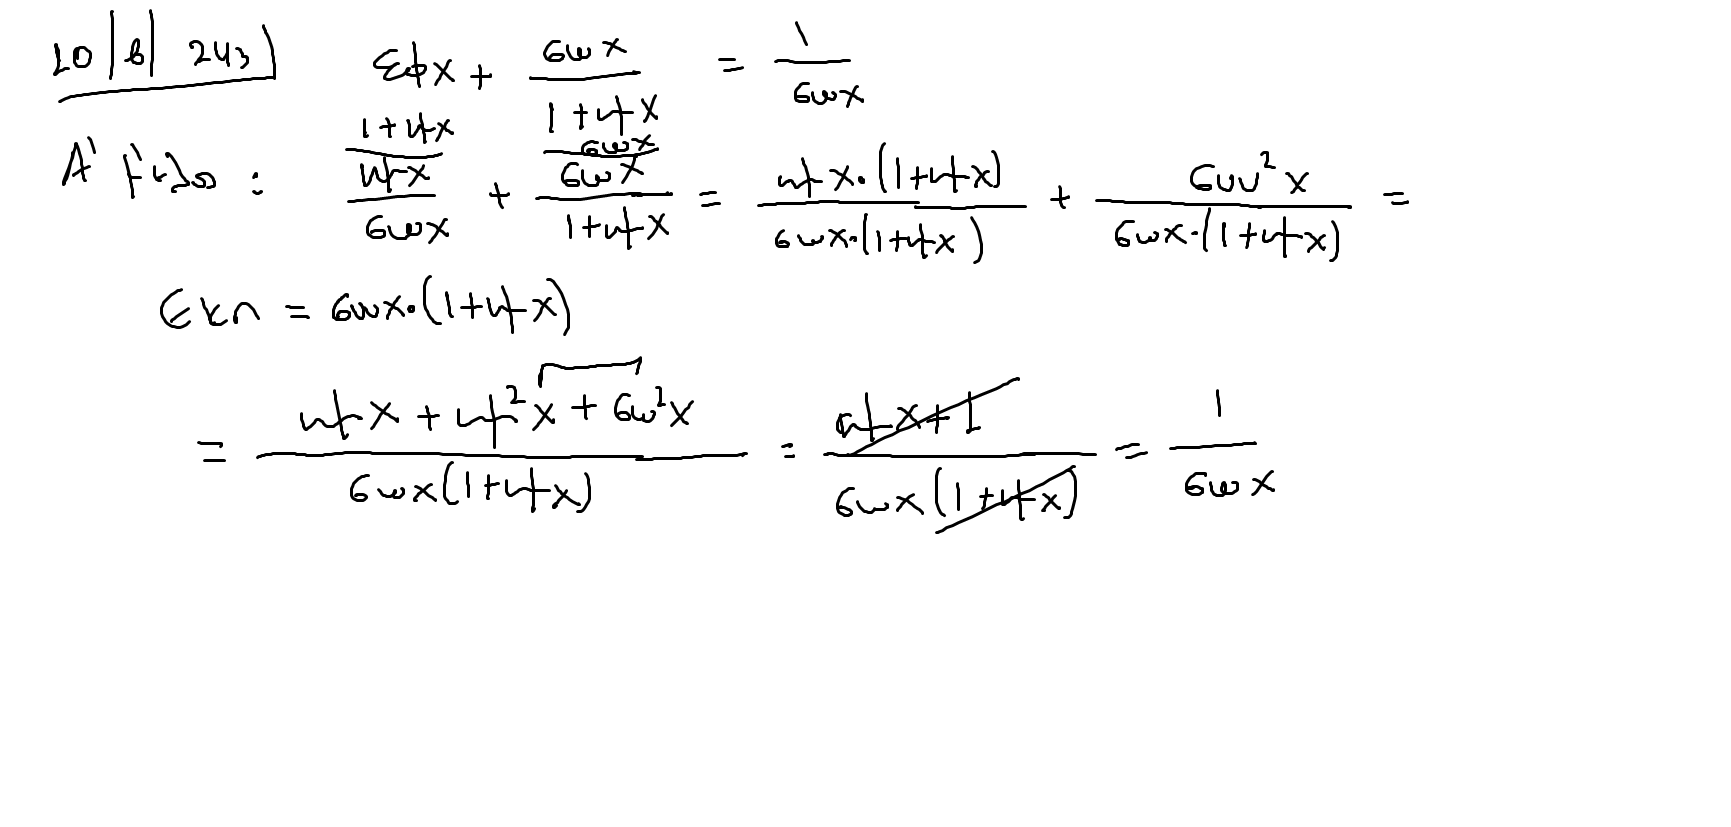 10|β| 243) εφx + συνx / 1+ημx = 1 / συνx
Α' μέλος : ημx / συνx + συνx / 1+ημx = ημx·(1+ημx) / συνx·(1+ημx) + συν²x / συνx·(1+ημx) =
Εκπ = συνx·(1+ημx)
= ημx + ημ²x + συν²x / συνx(1+ημx) = ημx+1 / συνx(1+ημx) = 1 / συνx